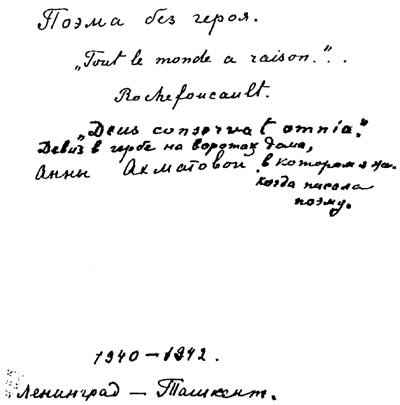 Поэма без героя.
„Tout le monde a raison.“..
Rochefoucault.
„Deus conservat omnia.“
Девиз в гербе на воротах дома,
Анны Ахматовой в котором я
когда писала
поэму.
1940–1942.
Ленинград – Ташкент.